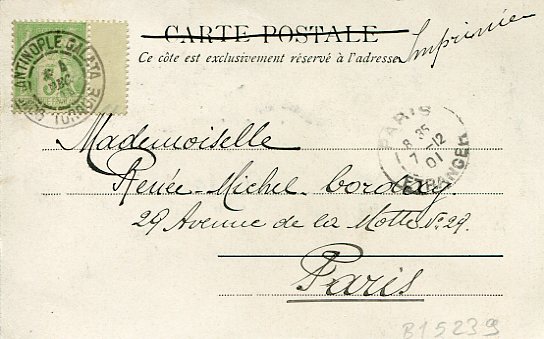 CARTE POSTALE
Ce côté est exclusivement réservé à l'adresse
Imprimée
CONSTANTINOPLE GALATA
4
DEC
TURQUIE
PARIS
8 35
7 -12
01
ETRANGER
Mademoiselle
Renée-Michel Corday
29 Avenue de la Motte No 29.
Paris
B15239